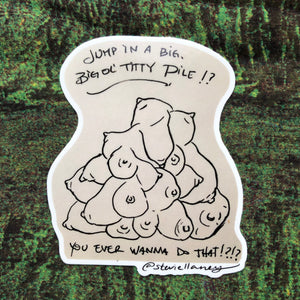 JUMP IN A BIG.
BIG OL' TITTY PILE !?
YOU EVER WANNA DO THAT!?!?
@steviellaney